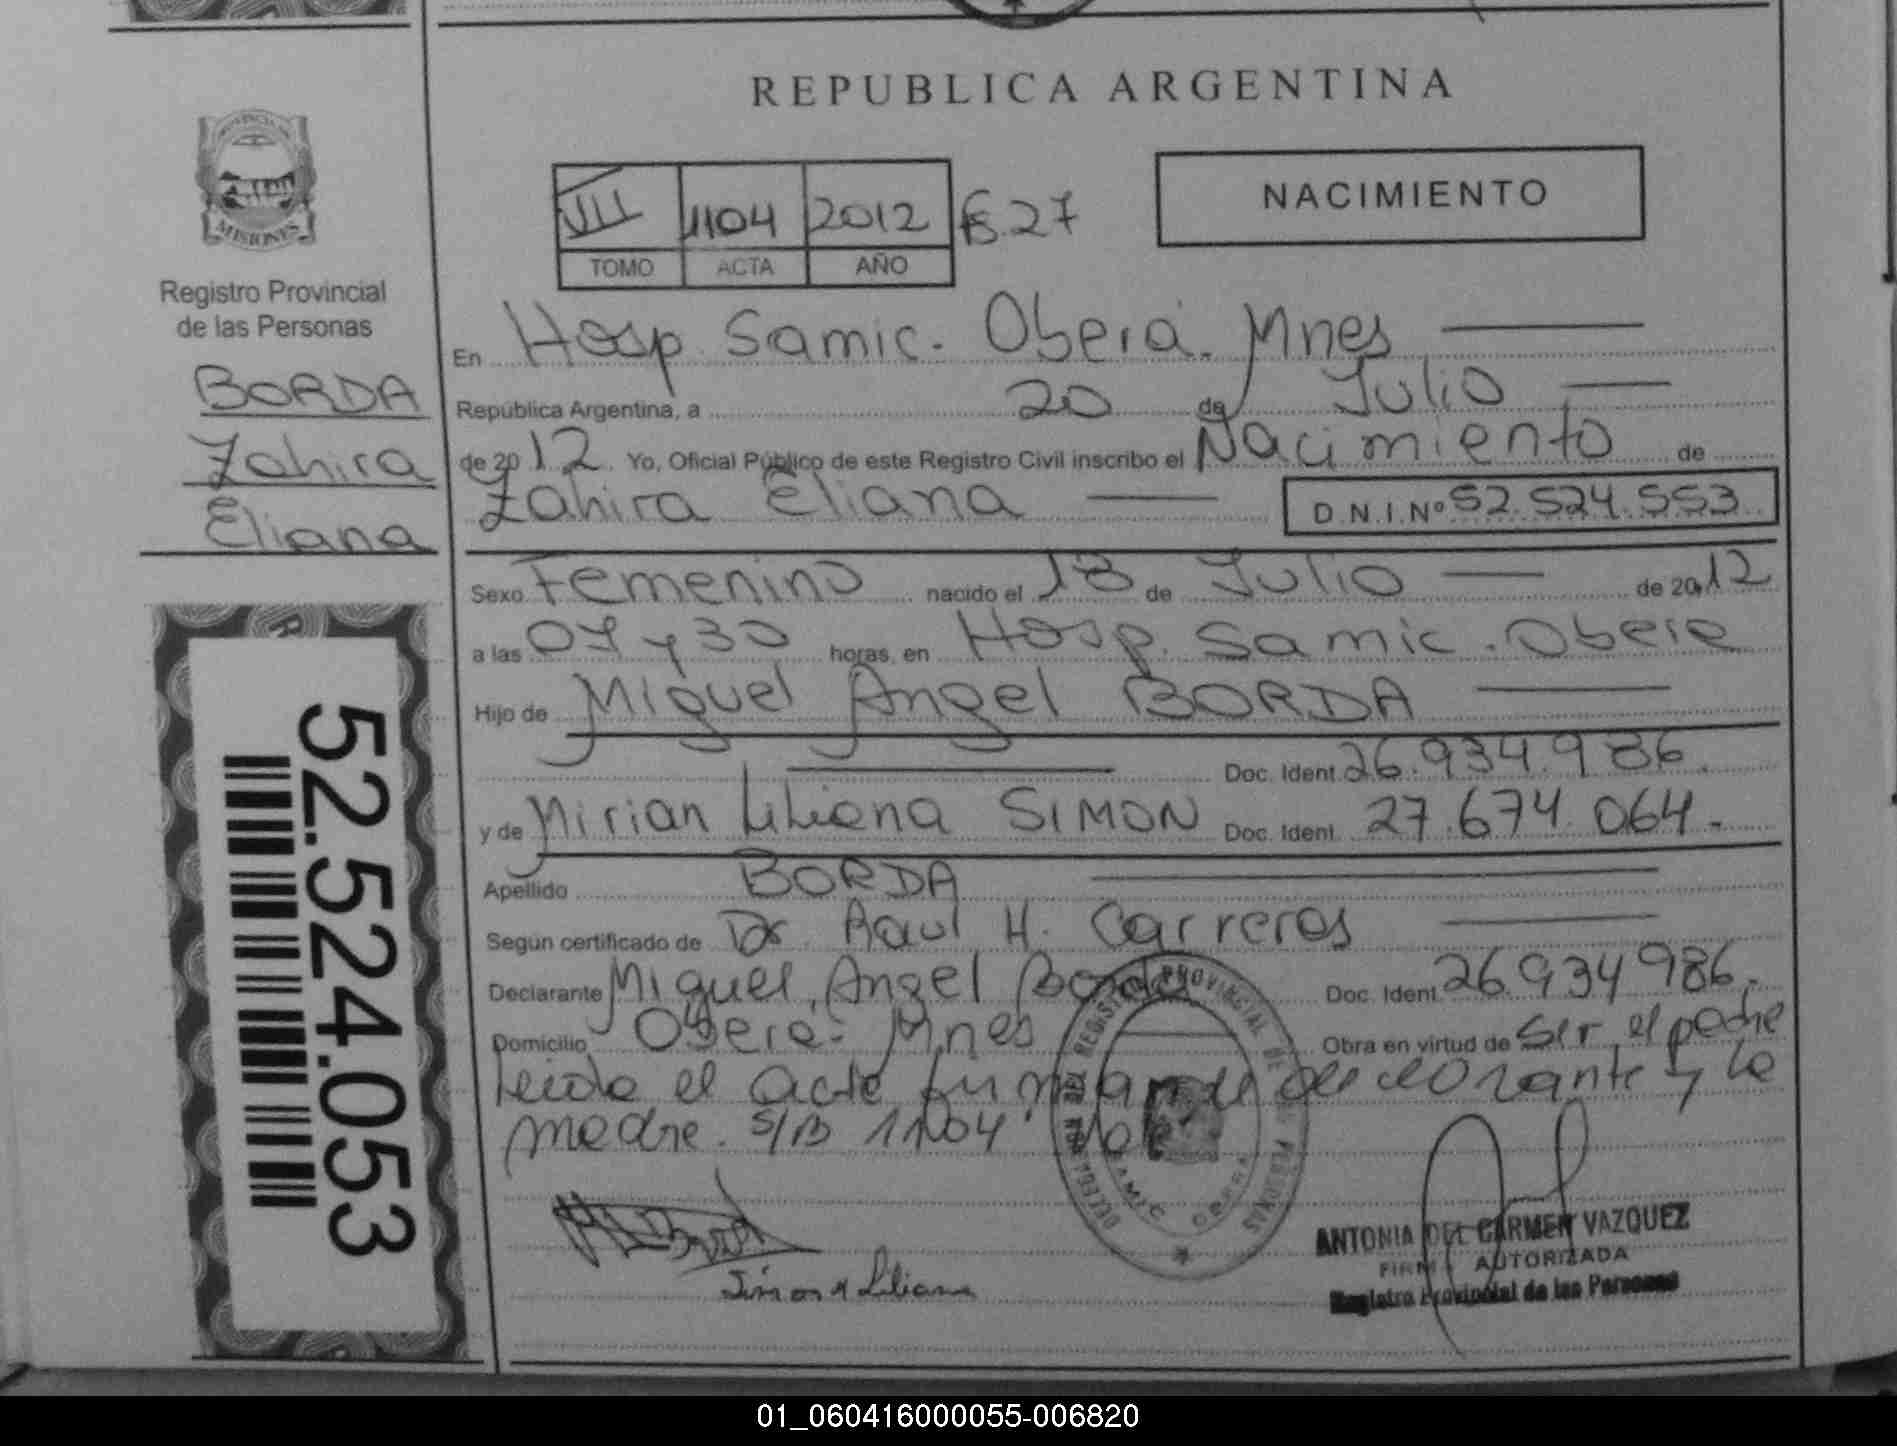 REPUBLICA ARGENTINA
PROVINCIA DE
MISIONES
Registro Provincial
de las Personas
BORDA
Zahira
Eliana
VII 1104 2012 Fs. 27
TOMO ACTA AÑO
NACIMIENTO
En Hosp. Samic. Oberá. Mnes
República Argentina, a 20 de Julio
de 2012. Yo, Oficial Público de este Registro Civil inscribo el Nacimiento de
Zahira Eliana D.N.I.Nº 52.524.553
Sexo Femenino nacido el 18 de Julio de 2012
a las 07 y 30 horas, en Hosp. Samic. Obera
Hijo de Miguel Angel BORDA
Doc. Ident. 26.934.986.
y de Mirian Liliana SIMON Doc. Ident. 27.674.064.
Apellido BORDA
Según certificado de Dr. Raul H. Carreros
Declarante Miguel Angel Borda Doc. Ident. 26.934.986.
Domicilio Obera. Mnes Obra en virtud de ser el padre
leida el acta firman el declarante y la
madre. S/B 1104
REGISTRO PROVINCIAL DE LAS PERSONAS
SAMIC OBERA
Simon M Liliana
ANTONIA DEL CARMEN VAZQUEZ
FIRMA AUTORIZADA
Registro Provincial de las Personas
52.524.053
01_060416000055-006820